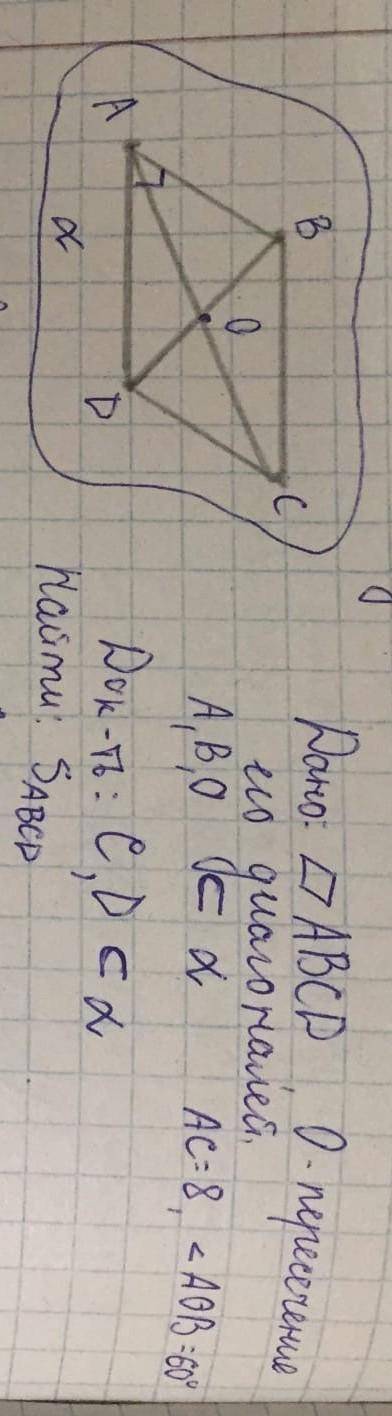 B
C
O
A
D
α
Дано: ▱ ABCD O - пересечение
его диагоналей,
A, B, O ⊂ α AC = 8, < AOB = 60°
Док-ть: C, D ⊂ α
Найти: S ABCD